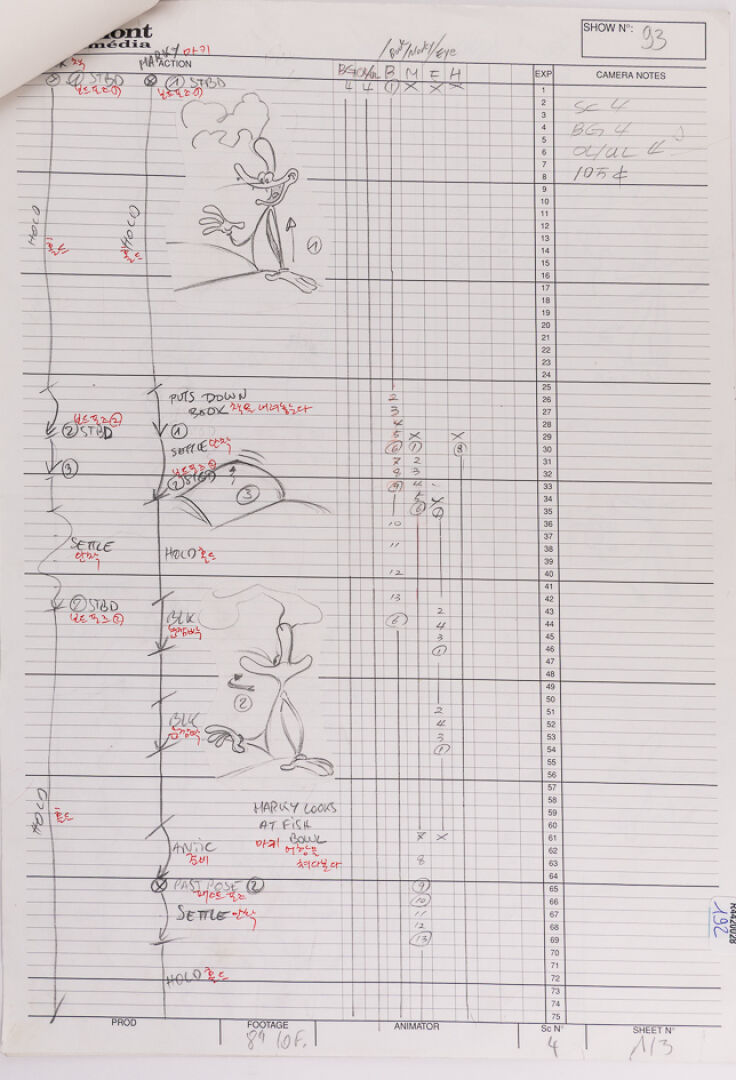 ont
média
SHOW N°: 93
MARKY 마키
ACTION
/Body/Mouth/Eye
BG B M E H
EXP
CAMERA NOTES
① STBD
① STBD
4 4 ① X X X
SC 4
BG 4
OL/UL 4
105 ¢
1
2
3
4
5
6
7
8
9
10
11
12
13
14
15
16
17
18
19
20
21
22
23
24
25
26
27
28
29
30
31
32
33
34
35
36
37
38
39
40
41
42
43
44
45
46
47
48
49
50
51
52
53
54
55
56
57
58
59
60
61
62
63
64
65
66
67
68
69
70
71
72
73
74
75
HOLD
홀드
HOLD
홀드
①
PUTS DOWN
BOOK 책을 내려놓는다
② STBD
①
SETTLE 안착
③
② STBD
③
2
3
4
5 X X
⑥ ① ⑧
7 2
8 3
⑨ 4 -
10
11
12
13
⑥
SETTLE
안착
HOLD 홀드
② STBD
BLK
눈깜박
②
2
4
3
①
BLK
눈깜박
2
4
3
①
HOLD
홀드
MARKY LOOKS
AT FISH
BOWL
마키 어항을
쳐다본다
ANTIC
준비
7 X
8
⑨
⑩
11
12
⑬
PAST POSE ②
SETTLE 안착
HOLD 홀드
R4420028
192
PROD
FOOTAGE
8" 10F.
ANIMATOR
Sc N°
4
SHEET N°
1/3